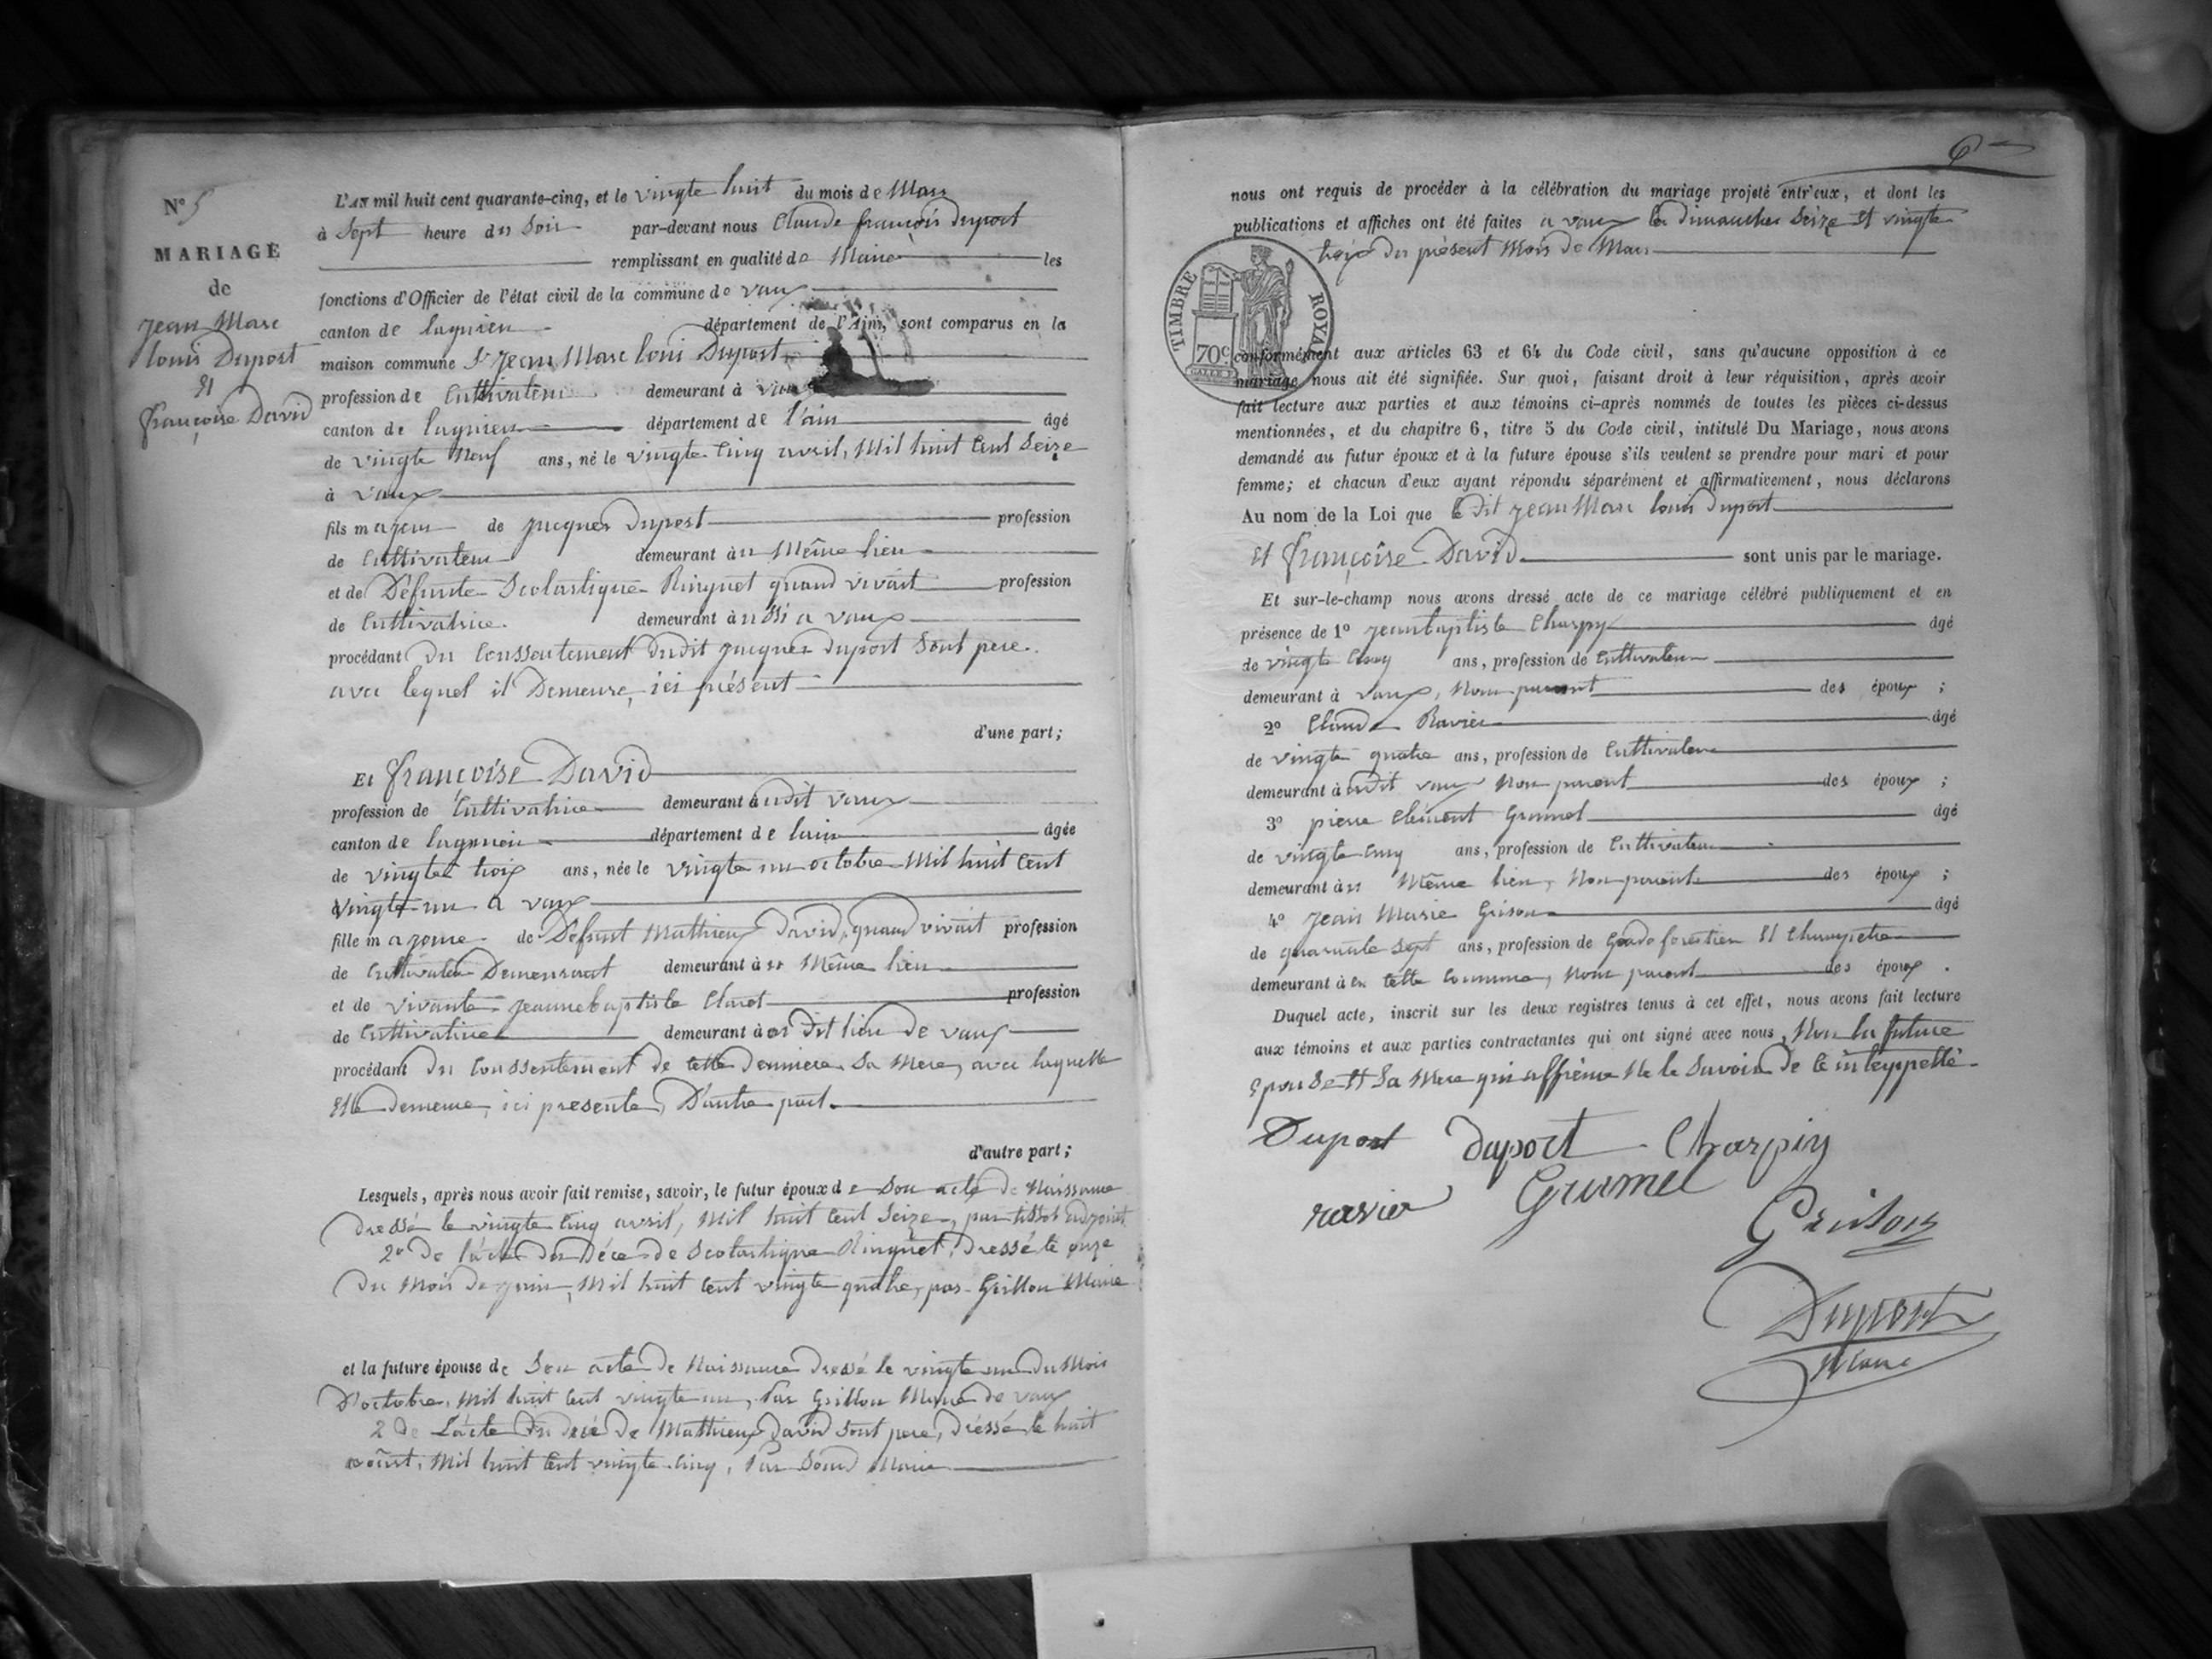 N° 5
MARIAGE
de
Jean Marc
louis Duport
Et
françoise David
L'AN mil huit cent quarante-cinq, et le vingte huit du mois de Mars
à Sept heure du Soir par-devant nous Claude françois Duport
remplissant en qualité de Maire les
fonctions d'Officier de l'état civil de la commune de vaux
canton de lagnieu département de l'Ain, sont comparus en la
maison commune Sr Jean Marc loui Duport
profession de Cultivateur demeurant à vaux
canton de lagnieu département de l'ain âgé
de vingte Neuf ans, né le vingte Cinq avril, Mil huit Cent Seize
à vaux
fils majeur de jacques Duport profession
de Cultivateur demeurant à u Même lieu
et de Défunte Scolastique Ringuet quand vivait profession
de Cultivatrice. demeurant à ussi a vaux
procédant Du Conssentement Dudit jacques Duport Sont pere.
avec lequel il Demeure, ici présent
d'une part;
Et françoise David
profession de Cultivatrice demeurant à udit vaux
canton de lagnieu département de lain âgée
de vingte trois ans, née le vingte un octobre Mil huit Cent
vingt-un a vaux
fille majeure de Défunt Mathieux David, quand vivait profession
de Cultivateur Demeurant demeurant à u Même lieu
et de vivante jeannebaptiste Claret profession
de Cultivatrice demeurant à u Dit lieu de vaux
procédant du Conssentement de Cette Derniere Sa Mere, avec laquelle
Elle demeure, ici presente, D'autre part.
d'autre part;
Lesquels, après nous avoir fait remise, savoir, le futur époux de Son acte de Naissance
Dressé le vingte Cinq avril, Mil huit Cent Seize, par tissot adjoint
2° De l'acte Du Déces de Scolastique Ringuet, Dressé le onze
Du Mois de juin, Mil huit Cent vingte quatre, par Grillon Maire
et la future épouse de Son acte de Naissance Dressé le vingte un du Mois
D'octobre, Mil huit Cent vingte un, Par Grillon Maire de vaux
2 De L'acte Du décé de Matthieux David Sont pere, Dréssé le huit
août, Mil huit Cent vingte Cinq, Par Maire
6
nous ont requis de procéder à la célébration du mariage projeté entr'eux, et dont les
publications et affiches ont été faites a vaux les Dimanches Seize Et vingte
troix du présent Mois de Mars
TIMBRE ROYAL
70c
conformément aux articles 63 et 64 du Code civil, sans qu'aucune opposition à ce
mariage nous ait été signifiée. Sur quoi, faisant droit à leur réquisition, après avoir
fait lecture aux parties et aux témoins ci-après nommés de toutes les pièces ci-dessus
mentionnées, et du chapitre 6, titre 5 du Code civil, intitulé Du Mariage, nous avons
demandé au futur époux et à la future épouse s'ils veulent se prendre pour mari et pour
femme; et chacun d'eux ayant répondu séparément et affirmativement, nous déclarons
Au nom de la Loi que le Dit Jean Marc louis Duport
Et françoise David sont unis par le mariage.
Et sur-le-champ nous avons dressé acte de ce mariage célébré publiquement et en
présence de 1° jeanbaptiste Charpy âgé
de vingte Cinq ans, profession de Cultivateur
demeurant à vaux, Non parent des époux ;
2° Claude Ravier âgé
de vingte quatre ans, profession de Cultivateur
demeurant à udit vaux Non parent des époux ;
3° pierre Clément Grumel âgé
de vingte Cinq ans, profession de Cultivateur
demeurant à u Même lieu, Non parent des époux ;
4° Jean Marie Grison âgé
de quarante Sept ans, profession de Garde forestier Et Champetre
demeurant à en Cette Commune, Non parent des époux .
Duquel acte, inscrit sur les deux registres tenus à cet effet, nous avons fait lecture
aux témoins et aux parties contractantes qui ont signé avec nous, Non la future
Epouse Et Sa Mere qui Ne le Savoir De Ce inteyppellé
Duport duport Charpiy
ravier Grumel
Grison
Duport
Maire